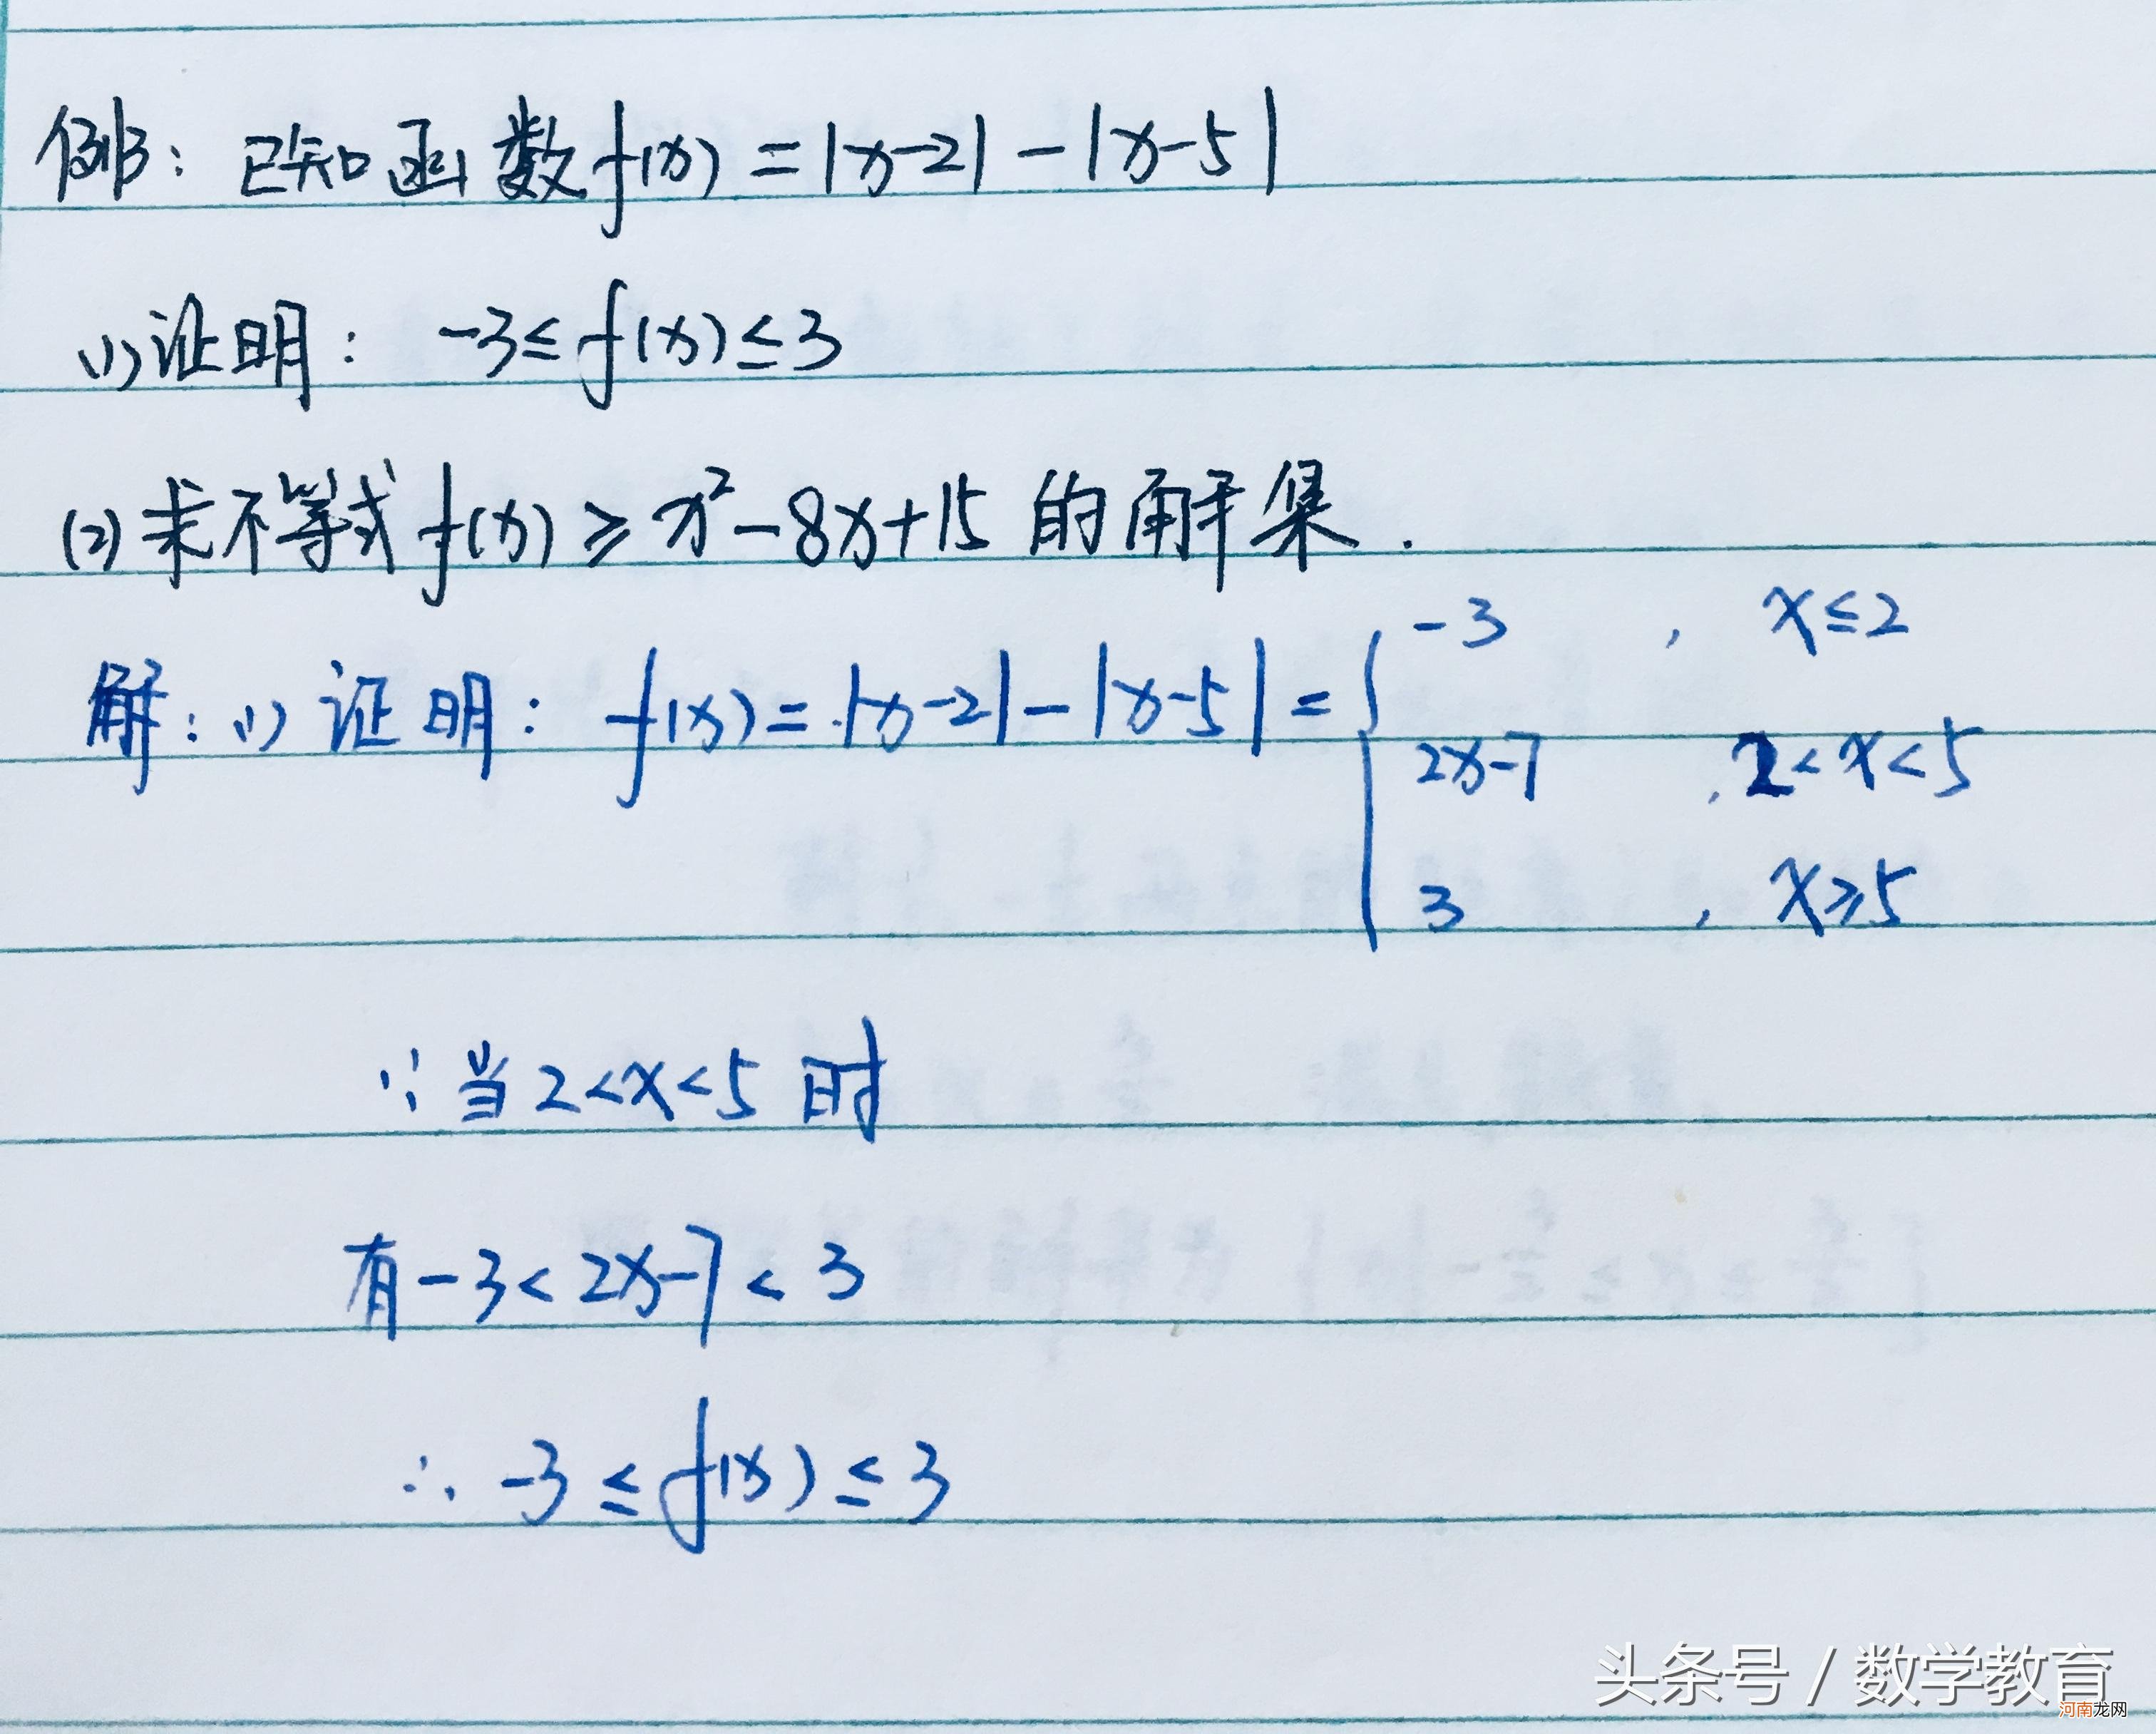 例3：已知函数f(x)=|x-2|-|x-5|
(1)证明：-3≤f(x)≤3
(2)求不等式f(x)≥x²-8x+15的解集.
解：(1)证明：f(x)=|x-2|-|x-5|={ -3 , x≤2
2x-7 , 2<x<5
3 , x≥5
∵当2<x<5时
有-3<2x-7<3
∴-3≤f(x)≤3
头条号 / 数学教育
河南龙网